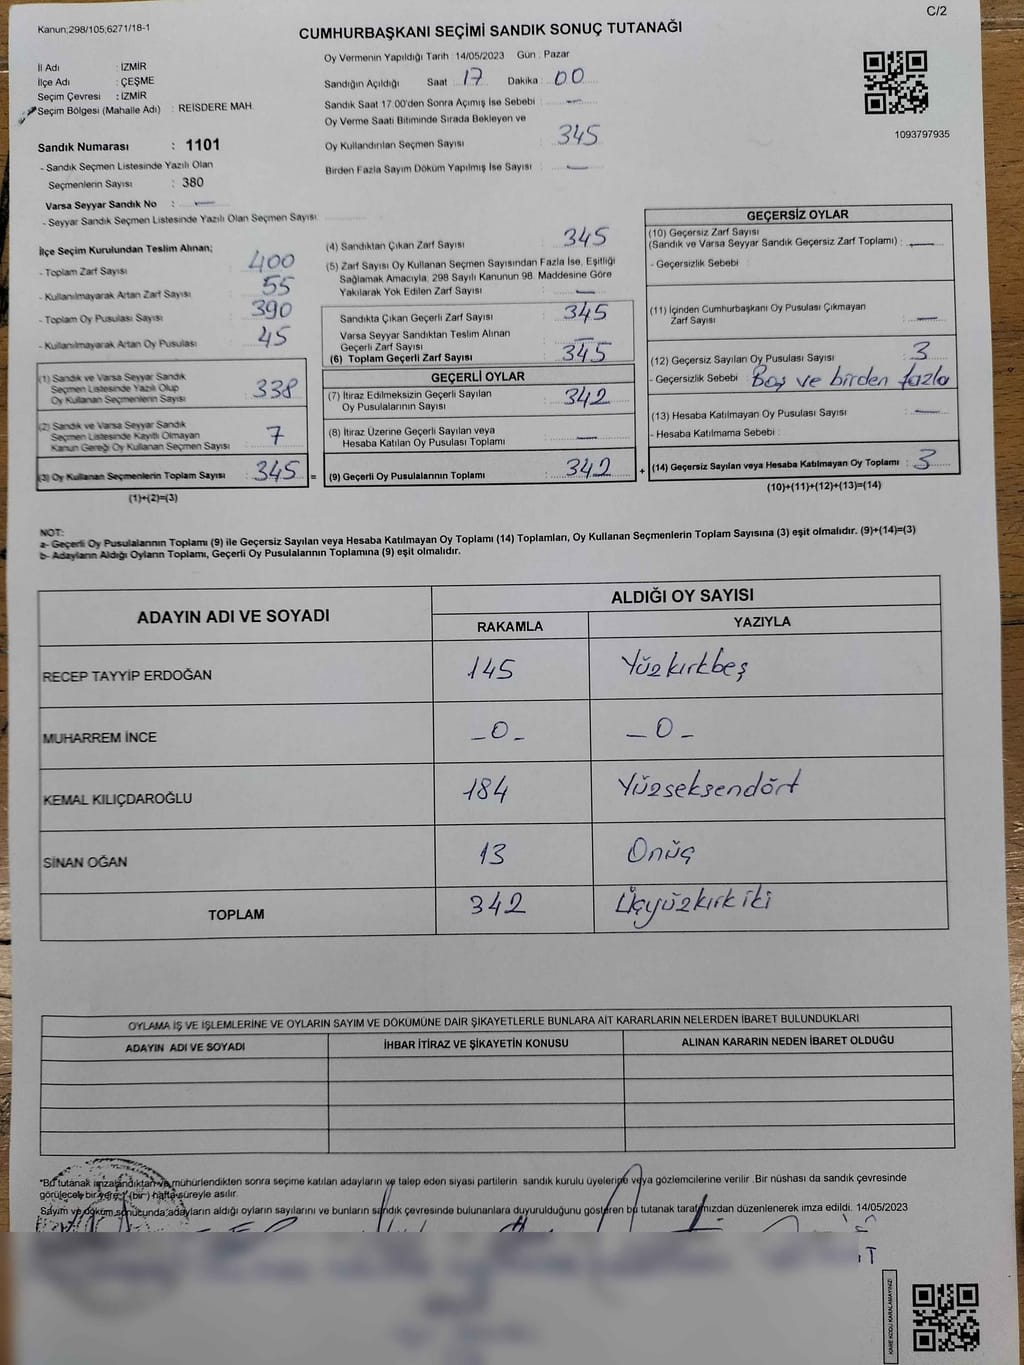 Kanun;298/105;6271/18-1
C/2
CUMHURBAŞKANI SEÇİMİ SANDIK SONUÇ TUTANAĞI
İl Adı : İZMİR
İlçe Adı : ÇEŞME
Seçim Çevresi : İZMİR
Seçim Bölgesi (Mahalle Adı) : REİSDERE MAH.
Sandık Numarası : 1101
- Sandık Seçmen Listesinde Yazılı Olan
Seçmenlerin Sayısı : 380
Varsa Seyyar Sandık No : —
- Seyyar Sandık Seçmen Listesinde Yazılı Olan Seçmen Sayısı:
Oy Vermenin Yapıldığı Tarih : 14/05/2023 Gün : Pazar
Sandığın Açıldığı Saat : 17 Dakika : 00
Sandık Saat 17.00'den Sonra Açımış İse Sebebi : —
Oy Verme Saati Bitiminde Sırada Bekleyen ve
Oy Kullandırılan Seçmen Sayısı : 345
Birden Fazla Sayım Döküm Yapılmış İse Sayısı : —
1093797935
İlçe Seçim Kurulundan Teslim Alınan;
- Toplam Zarf Sayısı : 400
- Kullanılmayarak Artan Zarf Sayısı : 55
- Toplam Oy Pusulası Sayısı : 390
- Kullanılmayarak Artan Oy Pusulası : 45
(1) Sandık ve Varsa Seyyar Sandık
Seçmen Listesinde Yazılı Olup
Oy Kullanan Seçmenlerin Sayısı : 338
(2) Sandık ve Varsa Seyyar Sandık
Seçmen Listesinde Kayıtlı Olmayan
Kanun Gereği Oy Kullanan Seçmen Sayısı : 7
(3) Oy Kullanan Seçmenlerin Toplam Sayısı : 345 =
(1)+(2)=(3)
(4) Sandıktan Çıkan Zarf Sayısı : 345
(5) Zarf Sayısı Oy Kullanan Seçmen Sayısından Fazla İse, Eşitliği
Sağlamak Amacıyla, 298 Sayılı Kanunun 98. Maddesine Göre
Yakılarak Yok Edilen Zarf Sayısı : —
Sandıkta Çıkan Geçerli Zarf Sayısı : 345
Varsa Seyyar Sandıktan Teslim Alınan
Geçerli Zarf Sayısı : —
(6) Toplam Geçerli Zarf Sayısı : 345
GEÇERLİ OYLAR
(7) İtiraz Edilmeksizin Geçerli Sayılan
Oy Pusulalarının Sayısı : 342
(8) İtiraz Üzerine Geçerli Sayılan veya
Hesaba Katılan Oy Pusulası Toplamı : —
(9) Geçerli Oy Pusulalarının Toplamı : 342 +
GEÇERSİZ OYLAR
(10) Geçersiz Zarf Sayısı
(Sandık ve Varsa Seyyar Sandık Geçersiz Zarf Toplamı) : —
- Geçersizlik Sebebi :
(11) İçinden Cumhurbaşkanı Oy Pusulası Çıkmayan
Zarf Sayısı : —
(12) Geçersiz Sayılan Oy Pusulası Sayısı : 3
- Geçersizlik Sebebi : Boş ve birden fazla
(13) Hesaba Katılmayan Oy Pusulası Sayısı : —
- Hesaba Katılmama Sebebi :
(14) Geçersiz Sayılan veya Hesaba Katılmayan Oy Toplamı : 3
(10)+(11)+(12)+(13)=(14)
NOT:
a- Geçerli Oy Pusulalarının Toplamı (9) ile Geçersiz Sayılan veya Hesaba Katılmayan Oy Toplamı (14) Toplamları, Oy Kullanan Seçmenlerin Toplam Sayısına (3) eşit olmalıdır. (9)+(14)=(3)
b- Adayların Aldığı Oyların Toplamı, Geçerli Oy Pusulalarının Toplamına (9) eşit olmalıdır.
ADAYIN ADI VE SOYADI
ALDIĞI OY SAYISI
RAKAMLA YAZIYLA
RECEP TAYYİP ERDOĞAN 145 Yüzkırkbeş
MUHARREM İNCE -0- -0-
KEMAL KILIÇDAROĞLU 184 Yüzseksendört
SİNAN OĞAN 13 Onüç
TOPLAM 342 Üçyüzkırkiki
OYLAMA İŞ VE İŞLEMLERİNE VE OYLARIN SAYIM VE DÖKÜMÜNE DAİR ŞİKAYETLERLE BUNLARA AİT KARARLARIN NELERDEN İBARET BULUNDUKLARI
ADAYIN ADI VE SOYADI İHBAR İTİRAZ VE ŞİKAYETİN KONUSU ALINAN KARARIN NEDEN İBARET OLDUĞU
*Bu tutanak imzalandıktan ve mühürlendikten sonra seçime katılan adayların ve talep eden siyasi partilerin sandık kurulu üyelerine veya gözlemcilerine verilir .Bir nüshası da sandık çevresinde
görülecek bir yere 1 (bir ) hafta süreyle asılır.
Sayım ve döküm sonucunda adayların aldığı oyların sayılarını ve bunların sandık çevresinde bulunanlara duyurulduğunu gösteren bu tutanak tarafımızdan düzenlenerek imza edildi. 14/05/2023
KARE KODU KARALAMAYINIZ!